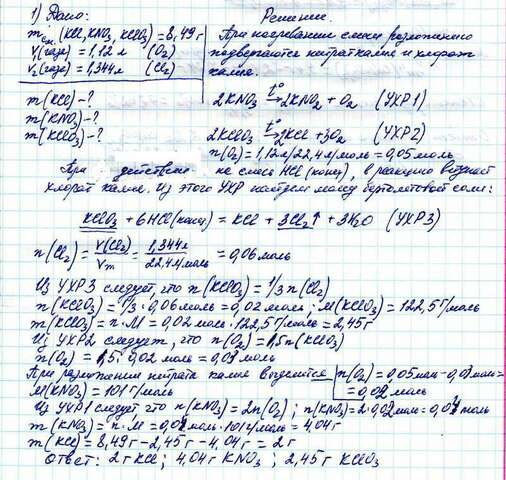 1) Дано: Решение.
m см. (KCl, KNO3, KClO3) = 8,49 г
V1(газа) = 1,12 л (O2)
V2(газа) = 1,344 л (Cl2)
При нагревании смеси разложению
подвергаются нитрат калия и хлорат
калия.
m(KCl) - ?
m(KNO3) - ?
m(KClO3) - ?
2KNO3 t°→ 2KNO2 + O2 (УХР1)
2KClO3 t°→ 2KCl + 3O2 (УХР2)
n(O2) = 1,12л/22,4л/моль = 0,05моль
При действии на смесь HCl(конц), в реакцию вступает
хлорат калия. Из этого УХР найдем массу бертолетовой соли:
KClO3 + 6HCl(конц) = KCl + 3Cl2↑ + 3H2O (УХР3)
n(Cl2) = V(Cl2)/Vm = 1,344л/22,4л/моль = 0,06моль
Из УХР3 следует, что n(KClO3) = 1/3 n(Cl2)
n(KClO3) = 1/3 · 0,06моль = 0,02моль; M(KClO3) = 122,5г/моль
m(KClO3) = n·M = 0,02моль·122,5г/моль = 2,45г
Из УХР2 следует, что n(O2) = 1,5n(KClO3)
n(O2) = 1,5·0,02моль = 0,03моль
При разложении нитрата калия выделится n(O2) = 0,05моль-0,03моль=
= 0,02моль
M(KNO3) = 101г/моль
Из УХР1 следует что n(KNO3) = 2n(O2); n(KNO3) = 2·0,02моль = 0,04моль
m(KNO3) = n·M = 0,04моль·101г/моль = 4,04г
m(KCl) = 8,49г-2,45г-4,04г = 2г
Ответ: 2г KCl; 4,04г KNO3; 2,45г KClO3